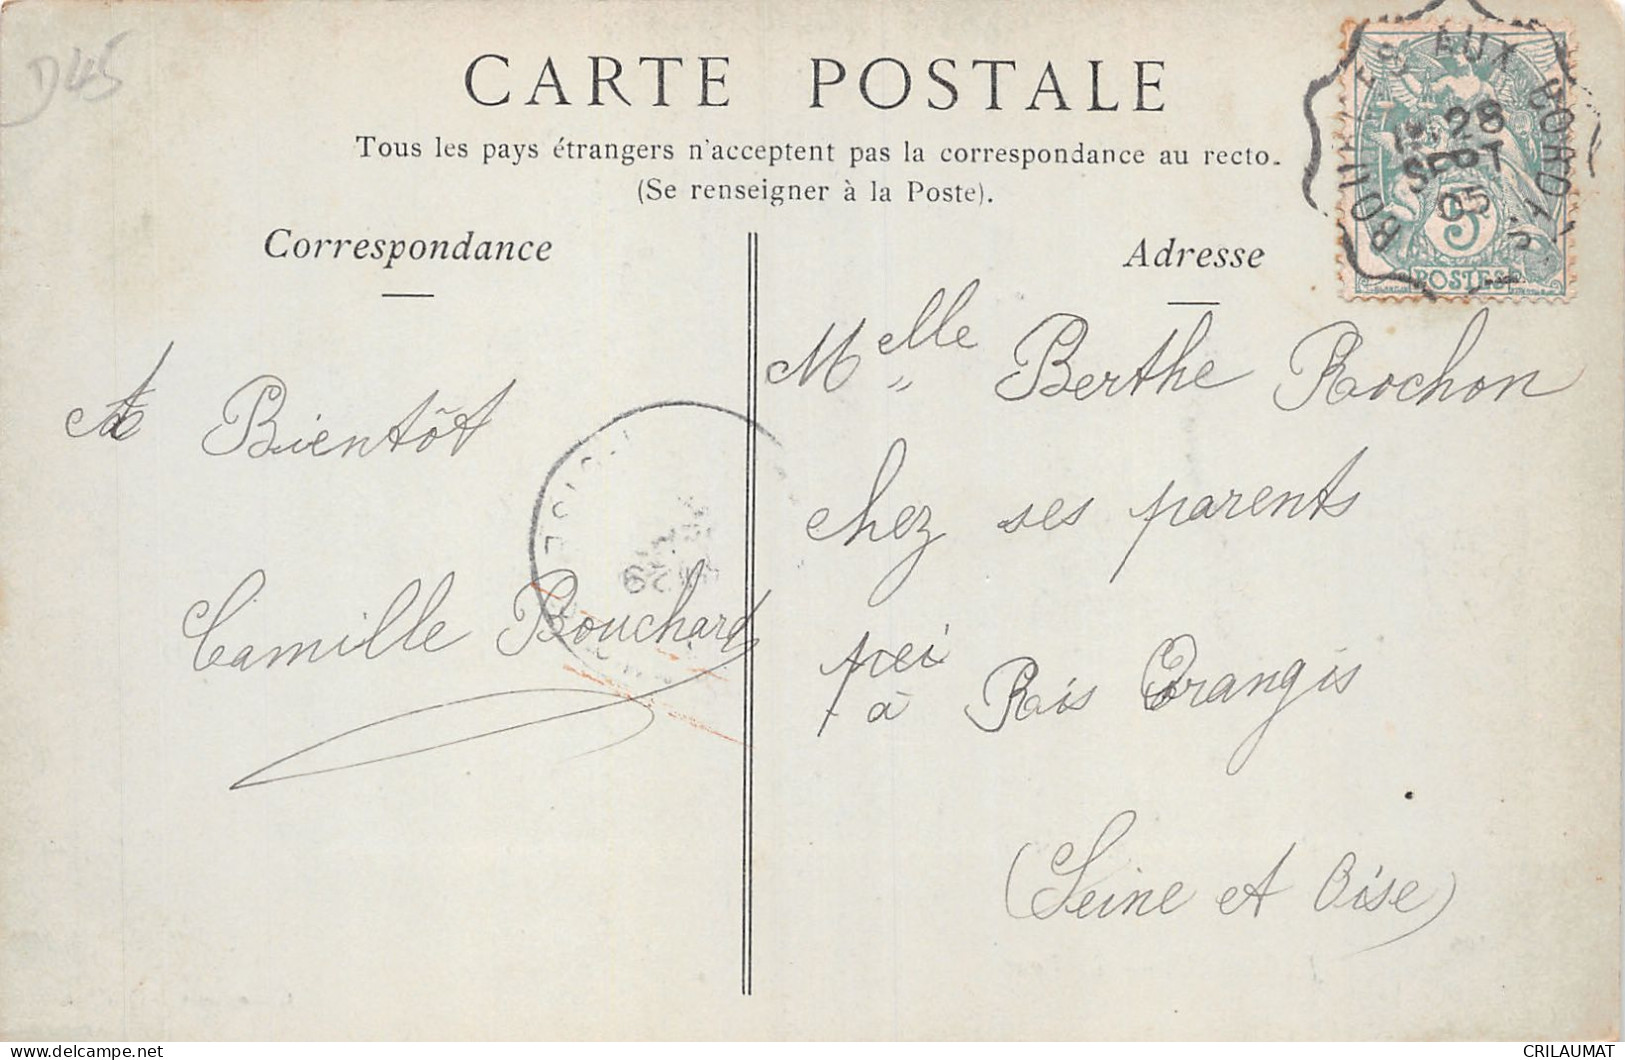 D45
CARTE POSTALE
Tous les pays étrangers n'acceptent pas la correspondance au recto.
(Se renseigner à la Poste).
Correspondance
Adresse
28
SEPT
05
5
POSTES
A Bientôt
Camille Bouchard
Melle Berthe Rochon
chez ses parents
à Ris Orangis
(Seine et Oise)
CRILAUMAT